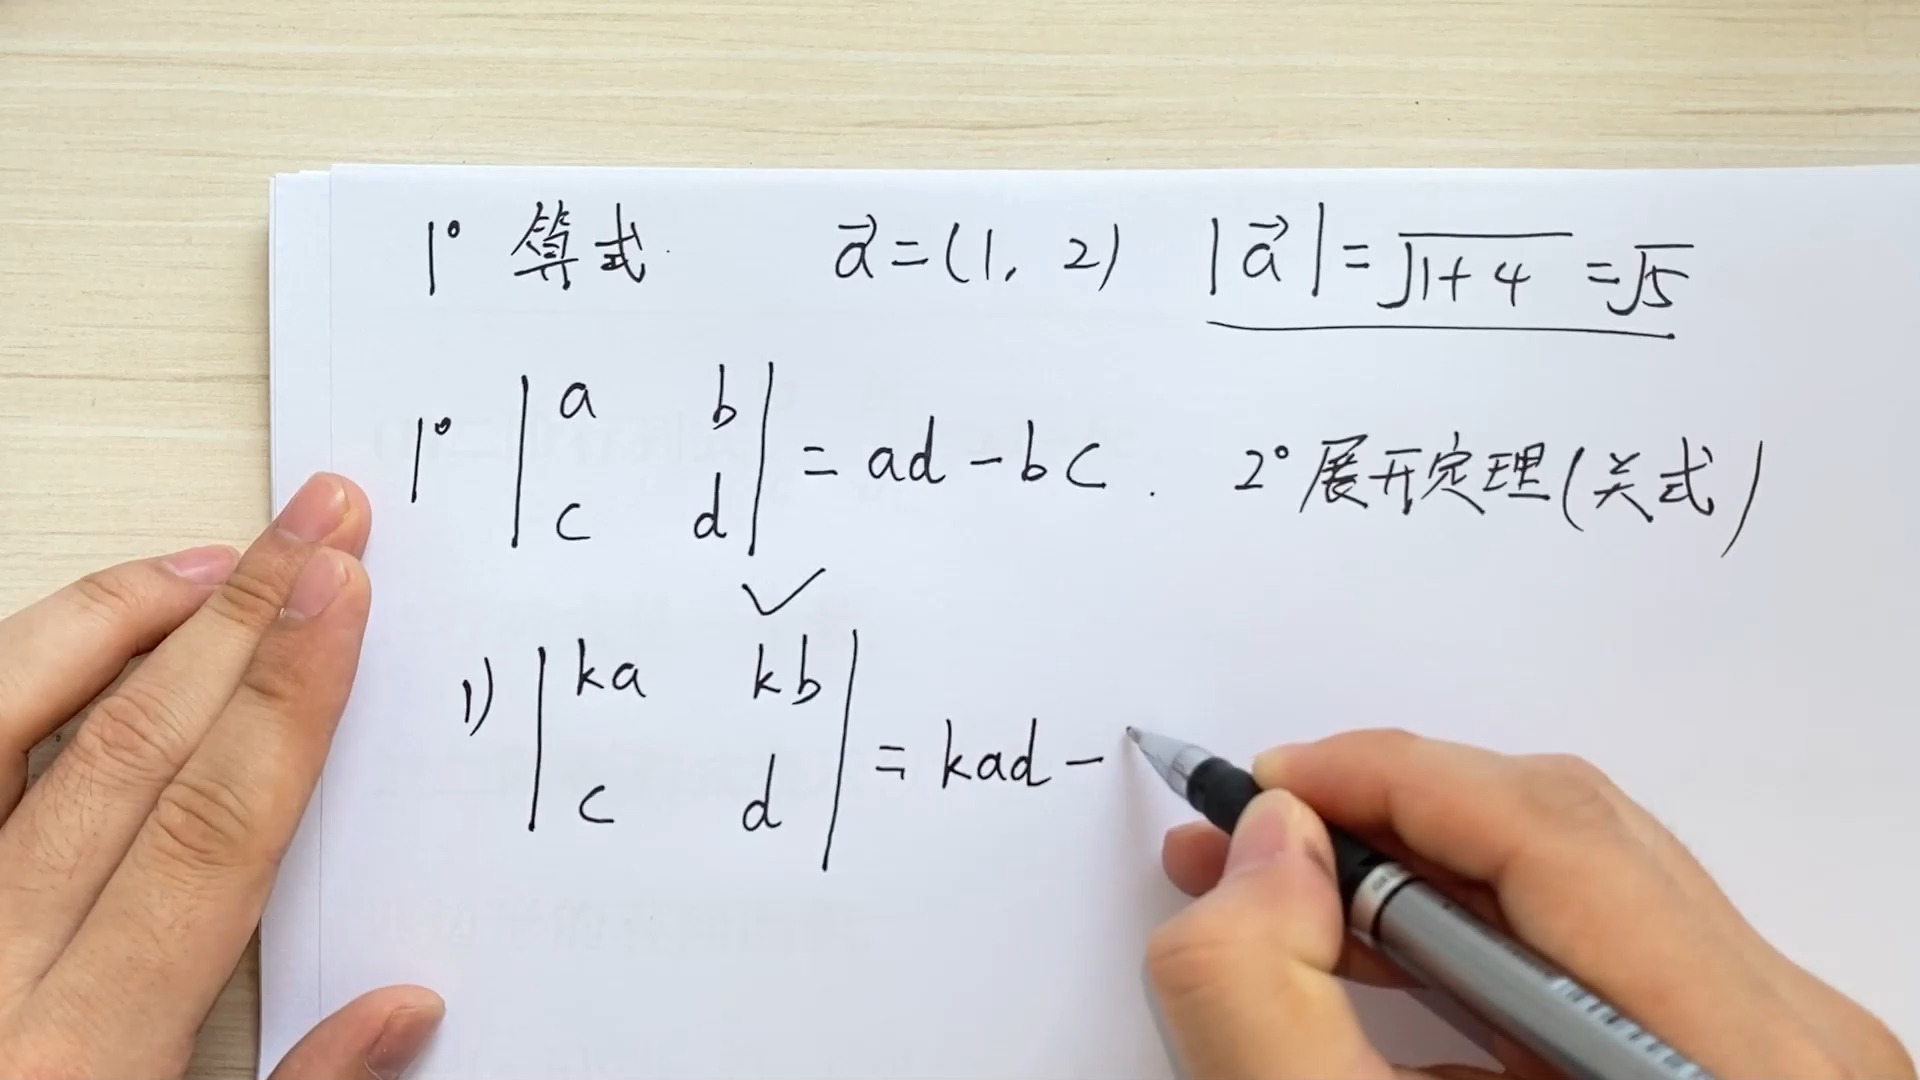 1° 算式. a⃗=(1, 2) |a⃗|=√1+4=√5
1° |a b
c d| = ad-bc. 2°展开定理(关式)
1) |ka kb
c d| = kad-